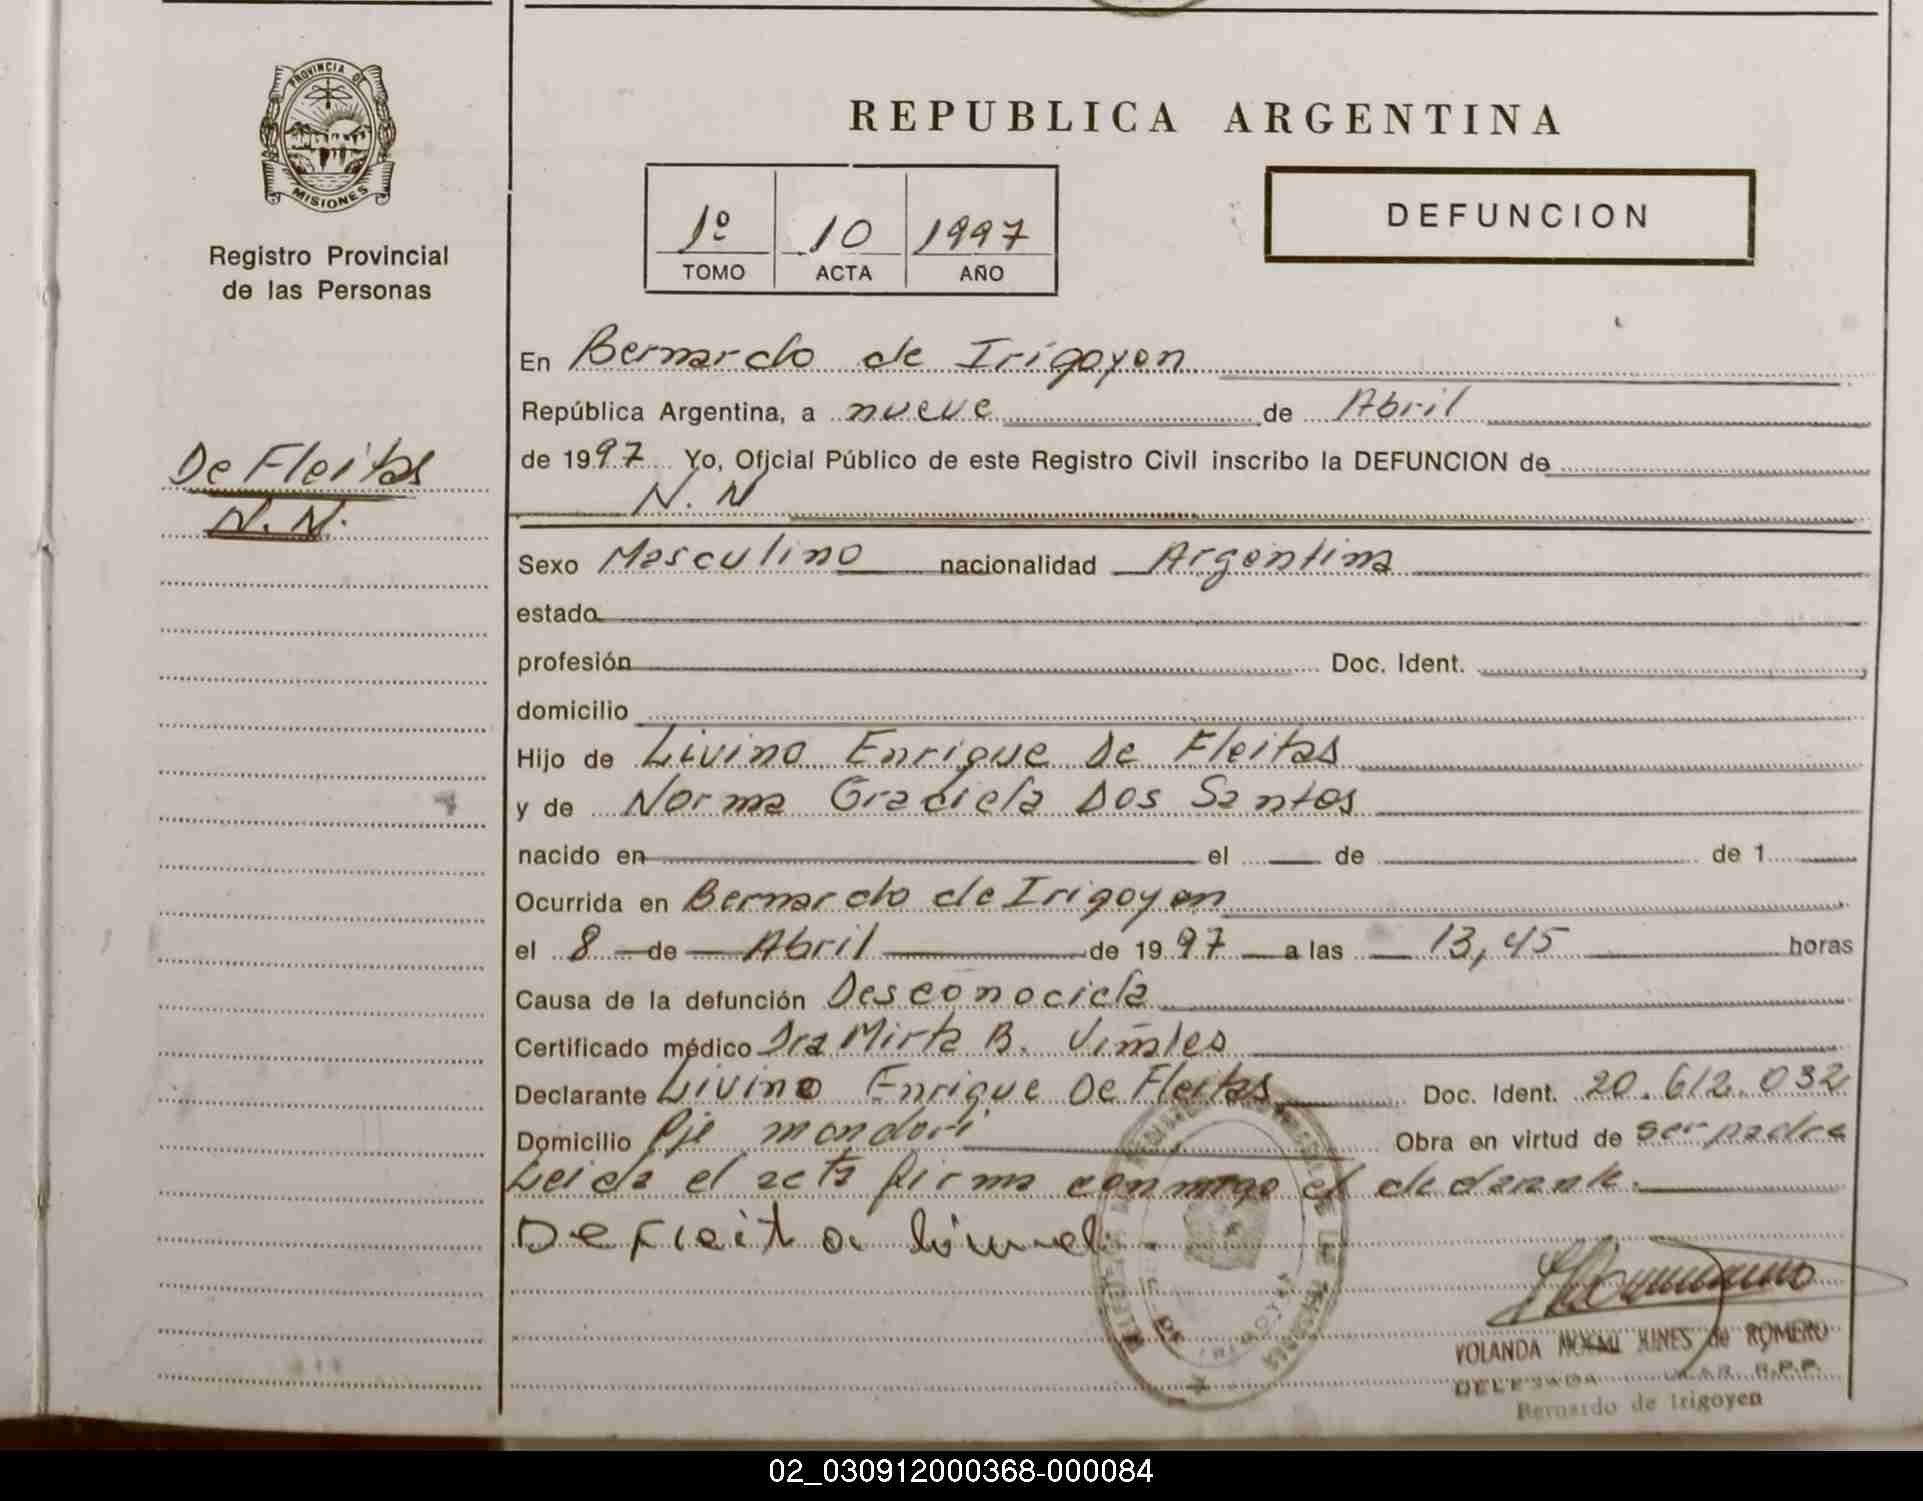 PROVINCIA DE
MISIONES
Registro Provincial
de las Personas
De Fleitas
N.N.
REPUBLICA ARGENTINA
1º 10 1997
TOMO ACTA AÑO
DEFUNCION
En Bernardo de Irigoyen
República Argentina, a nueve de Abril
de 1997 Yo, Oficial Público de este Registro Civil inscribo la DEFUNCION de
N.N
Sexo Masculino nacionalidad Argentina
estado
profesión Doc. Ident.
domicilio
Hijo de Livino Enrique De Fleitas
y de Norma Graciela Dos Santos
nacido en el de de 1
Ocurrida en Bernardo de Irigoyen
el 8 de Abril de 1997 a las 13,45 horas
Causa de la defunción Desconocida
Certificado médico Dra Mirta B.
Declarante Livino Enrique De Fleitas Doc. Ident. 20.612.032
Domicilio Pje mandori Obra en virtud de ser padre
Leida el acta firma conmigo el declarante.
De Fleita
YOLANDA de ROMERO
Bernardo de Irigoyen
02_030912000368-000084